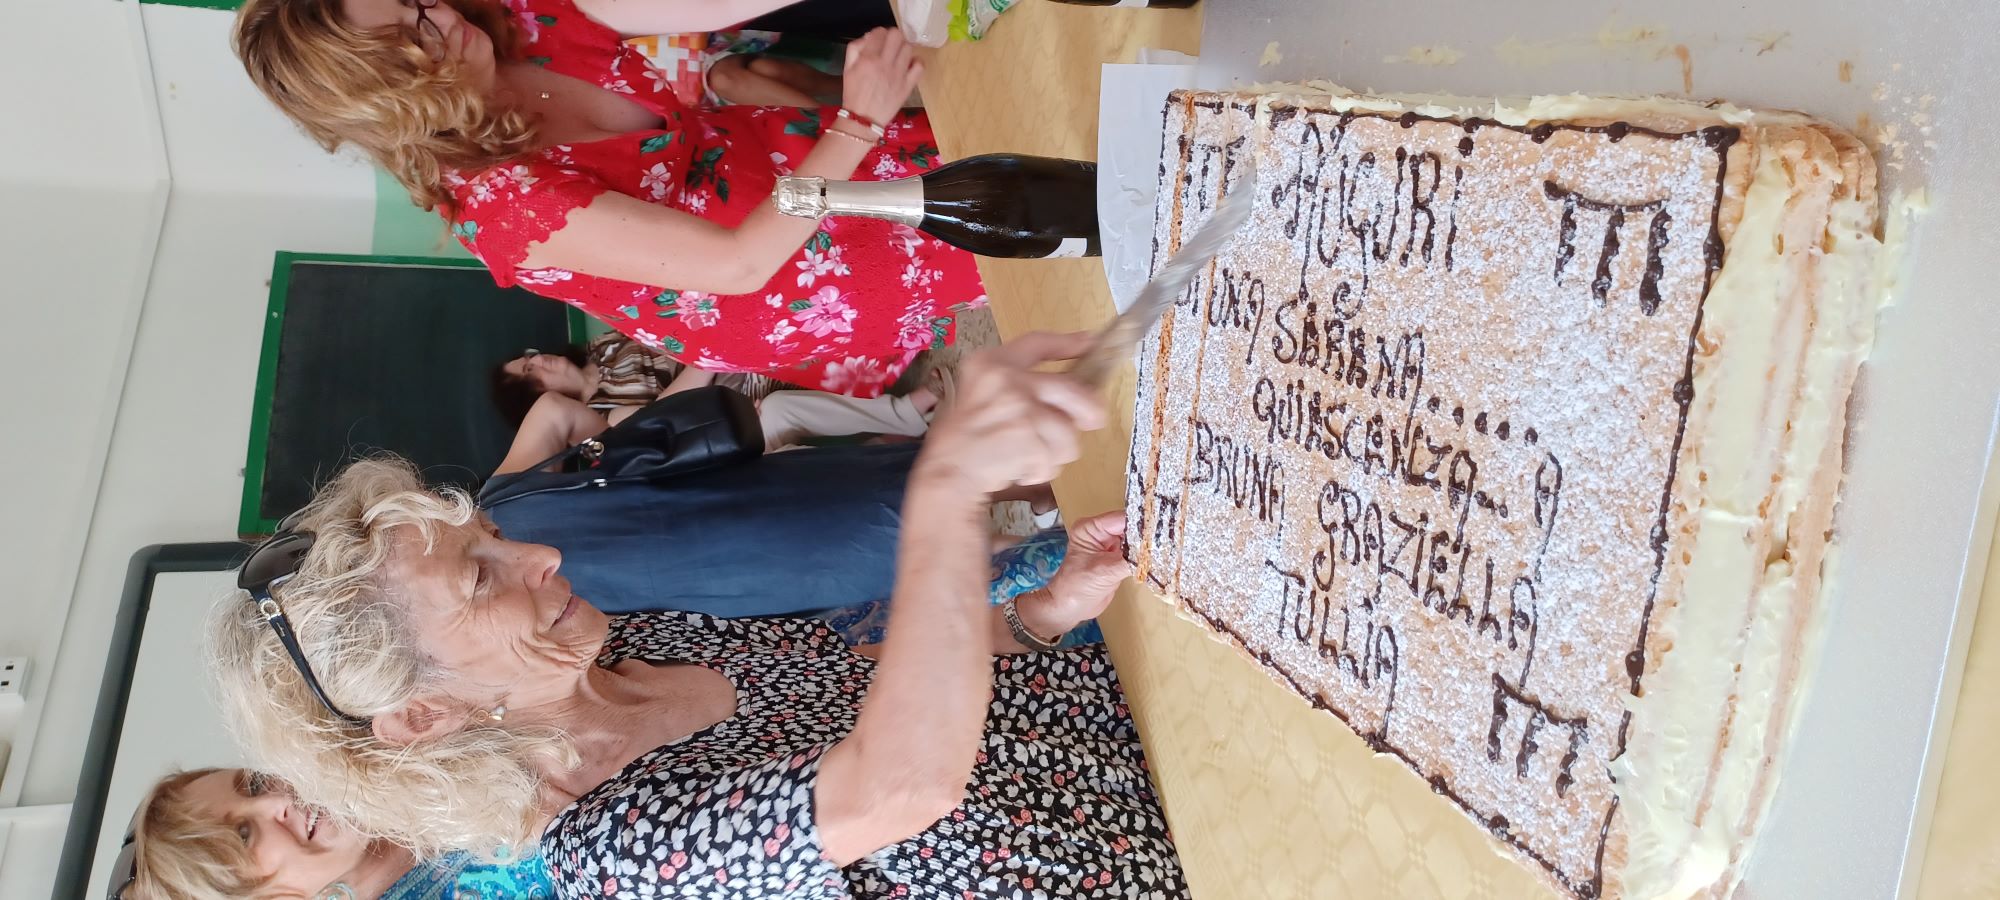 AUGURI
DI UNA SERENA.....
QUIESCENZA... A
BRUNA GRAZIELLA
TULLIA